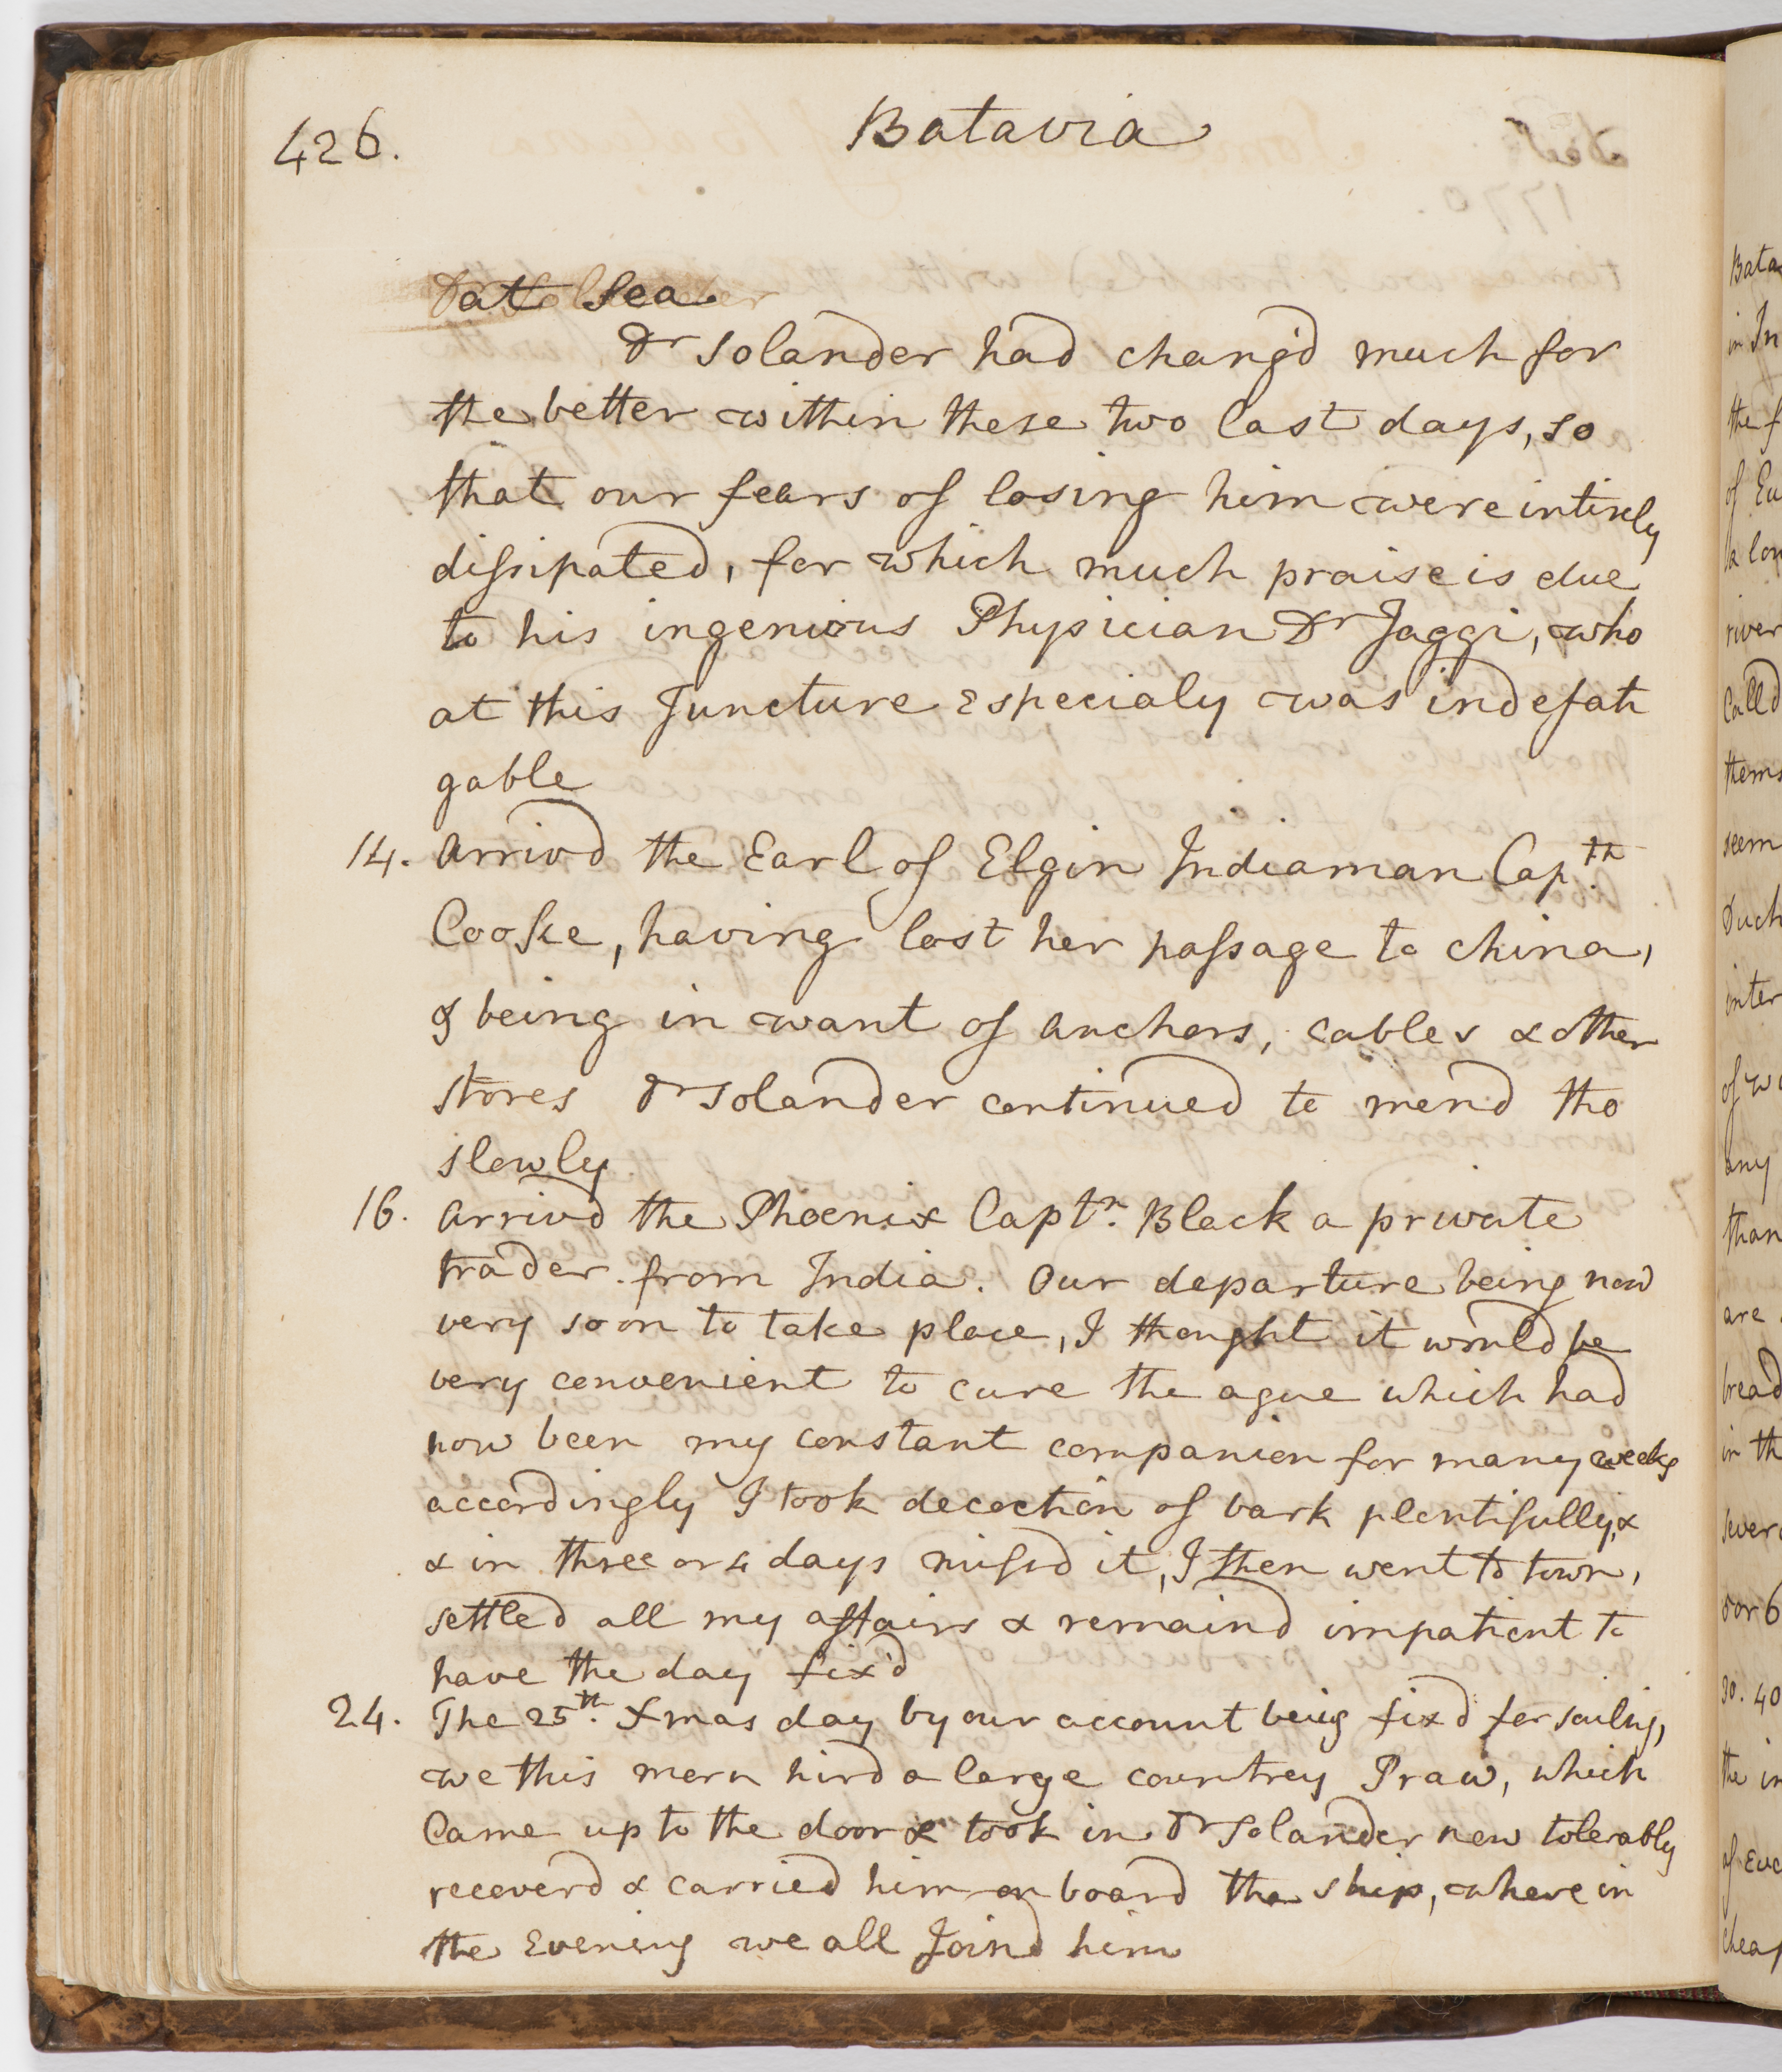 426.
Batavia
at Sea
Dr Solander had chang'd much for
the better within these two last days, so
that our fears of losing him were intirely
dissipated, for which much praise is due
to his ingenious Physician Dr Jaggi, who
at this Juncture especialy was indefati
gable
14. Arrivd the Earl of Elgin Indiaman Captn
Cooke, having lost her passage to China,
& being in want of anchors, cables & other
stores Dr Solander continued to mend tho
slowly
16. Arrivd the Phoenix Captn. Black a private
trader from India. Our departure being now
very soon to take place, I thought it would be
very convenient to cure the ague which had
now been my constant companion for many weeks
accordingly I took decoction of bark plentifully, &
& in three or 4 days missd it, I then went to town,
settled all my affairs & remaind impatient to
have the day fix'd
24. The 25th. Xmas day by our account being fixd for sailing,
we this morn hird a large countrey Praw, which
Came up to the door & took in Dr Solander now tolerably
recoverd & carried him on board the ship, where in
the Evening we all Joind him
Bata
in In
the f
of Eu
a lon
river
Calld
thems
seem
Duch
inter
of wi
any
than
are
bread
in th
sever
5 or 6
30. 40
the in
of eve
cheap